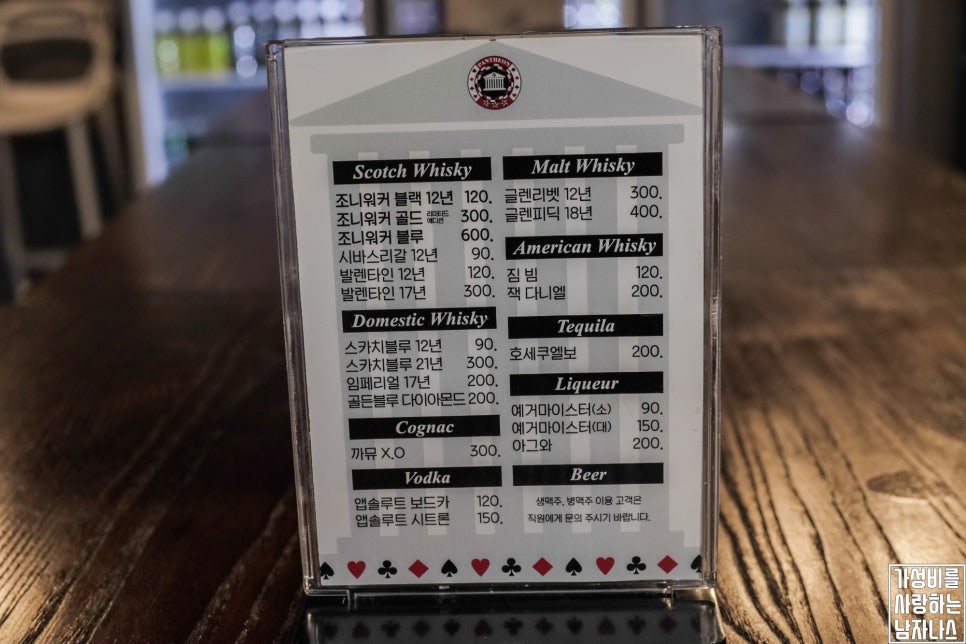 PANTHEON
Scotch Whisky
조니워커 블랙 12년 120.
조니워커 골드 리미티드 에디션 300.
조니워커 블루 600.
시바스리갈 12년 90.
발렌타인 12년 120.
발렌타인 17년 300.
Domestic Whisky
스카치블루 12년 90.
스카치블루 21년 300.
임페리얼 17년 200.
골든블루 다이아몬드 200.
Cognac
까뮤 X.O 300.
Vodka
앱솔루트 보드카 120.
앱솔루트 시트론 150.
Malt Whisky
글렌리벳 12년 300.
글렌피딕 18년 400.
American Whisky
짐 빔 120.
잭 다니엘 200.
Tequila
호세쿠엘보 200.
Liqueur
예거마이스터(소) 90.
예거마이스터(대) 150.
아그와 200.
Beer
생맥주, 병맥주 이용 고객은
직원에게 문의 주시기 바랍니다.
가성비를
사랑하는
남자나스